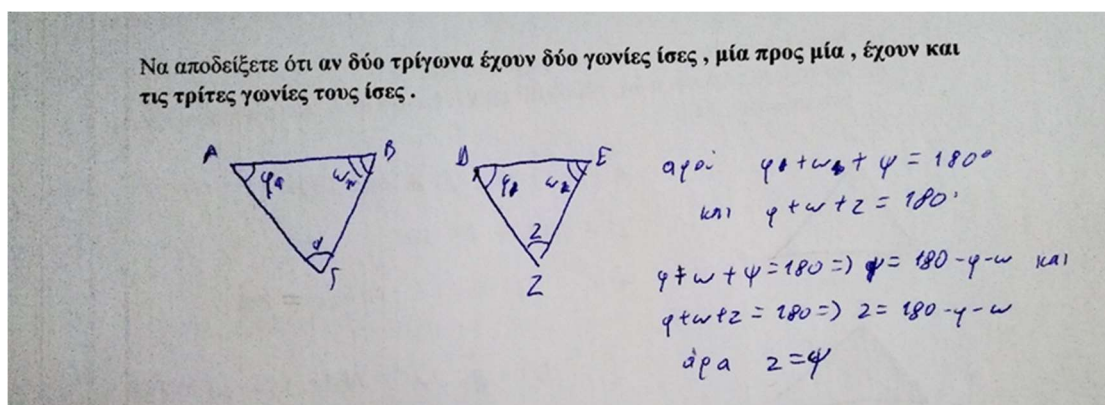 Να αποδείξετε ότι αν δύο τρίγωνα έχουν δύο γωνίες ίσες , μία προς μία , έχουν και
τις τρίτες γωνίες τους ίσες .
A B D E
φ ω φ ω
Γ Z
αφού φ + ω + ψ = 180°
και φ + ω + z = 180°
φ + ω + ψ = 180 => ψ = 180 - φ - ω και
φ + ω + z = 180 => z = 180 - φ - ω
άρα z = ψ